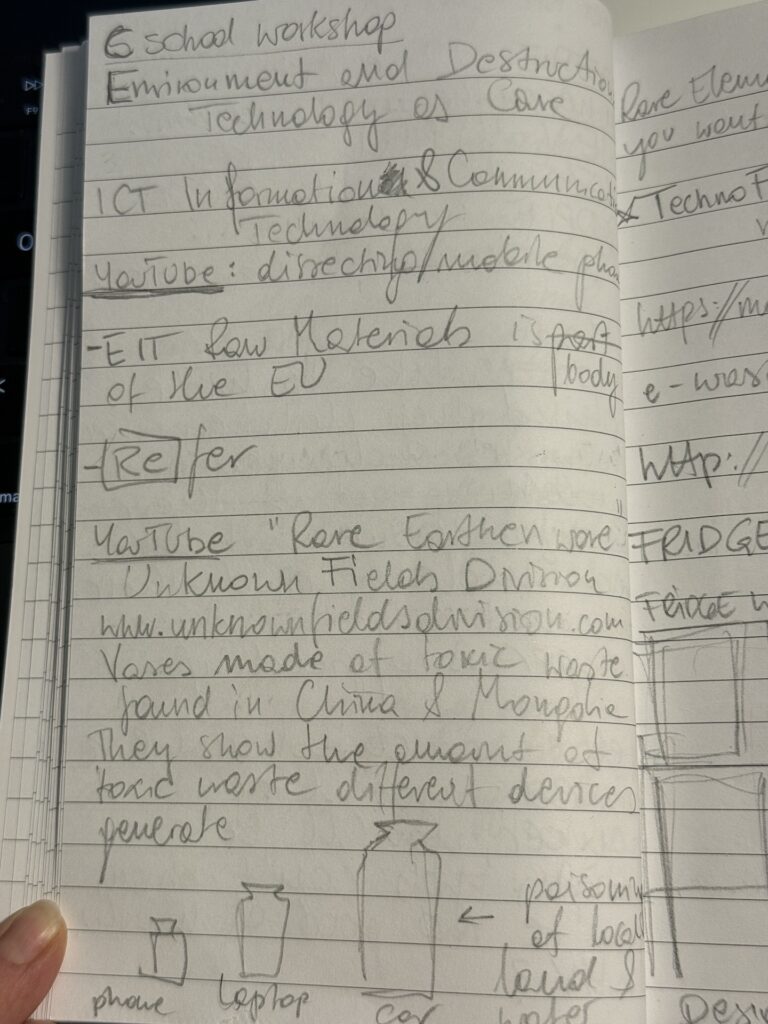 6 school workshop
Environment and Destruction
Technology as Care
ICT Information & Communicati
Technology
YouTube: dissecting/mobile pho
- EIT Raw Materials is part
of the EU body
- Re fer
YouTube "Rare Earthenware"
Unknown Fields Division
www.unknownfieldsdivision.com
Vases made of toxic waste
found in China & Mongolia
They show the amount of
toxic waste different devices
generate
poisonin
of local
land &
water
phone laptop car
Rare Elem
you want
Techno F
https://m
e-was
http://
FRIDGE
FRIDGE W
Desi